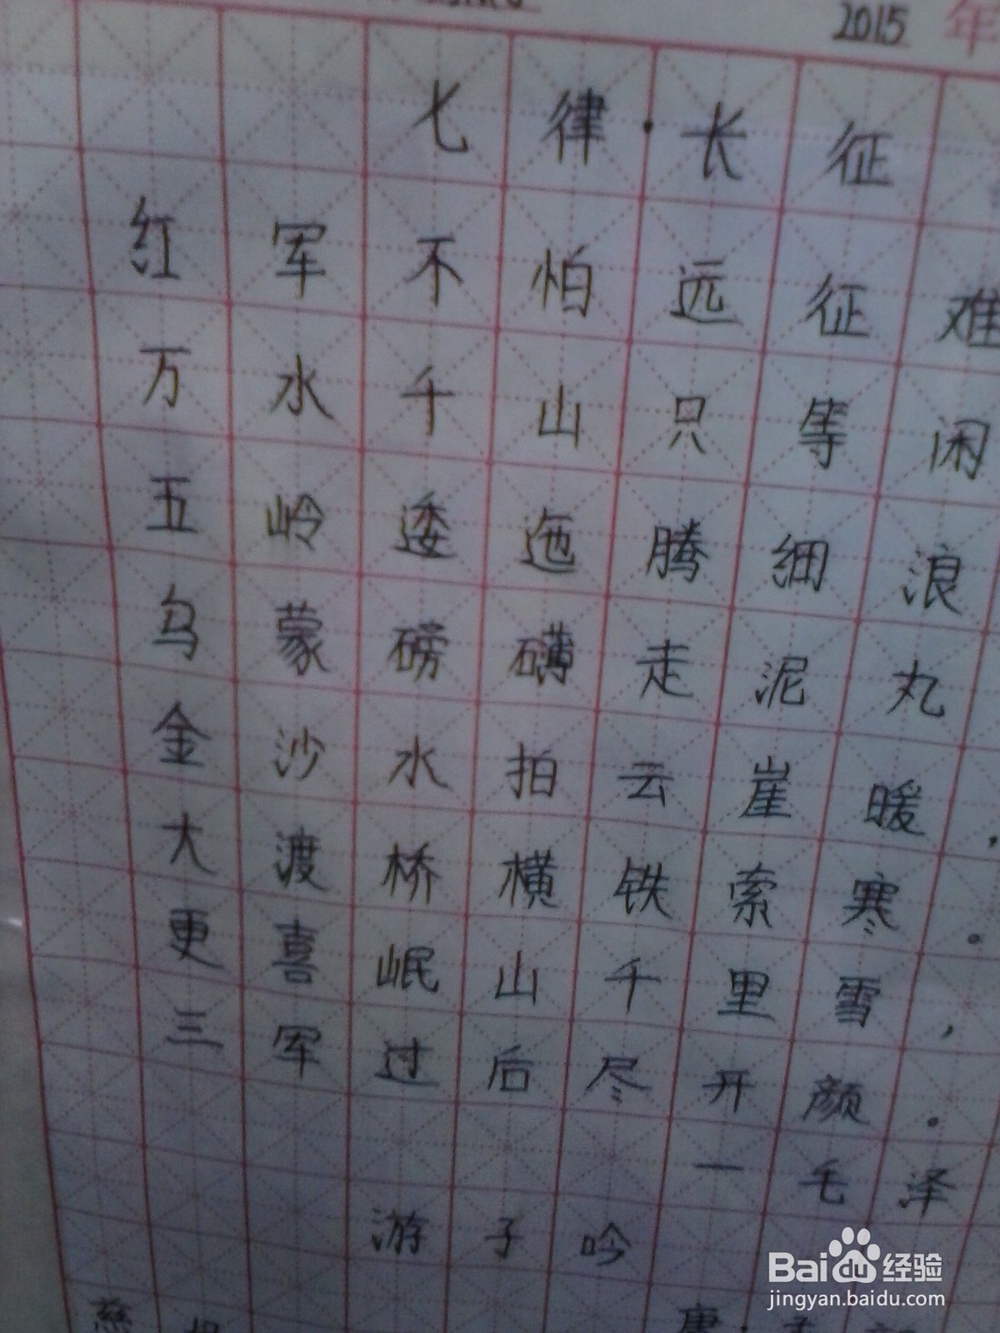 2015 年
七律·长征
红军不怕远征难
万水千山只等闲
五岭逶迤腾细浪
乌蒙磅礴走泥丸
金沙水拍云崖暖,
大渡桥横铁索寒。
更喜岷山千里雪,
三军过后尽开颜.
一毛泽
游子吟
慈母
唐·孟
Baidu 经验
jingyan.baidu.com